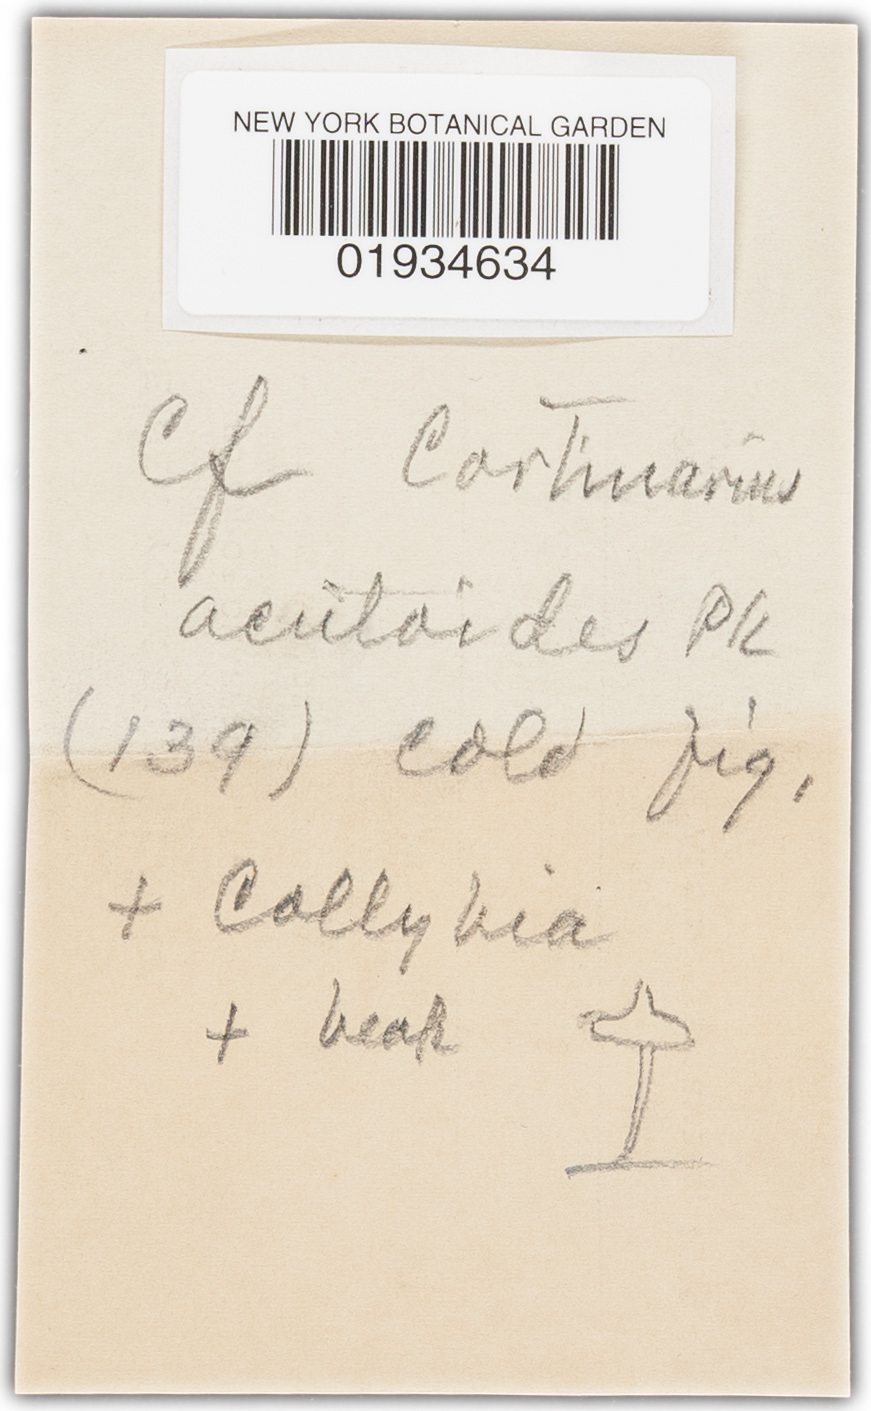 NEW YORK BOTANICAL GARDEN
01934634
Cf Cortinarius
acutoides Pk
(139) cold fig.
+ Collybia
+ beak